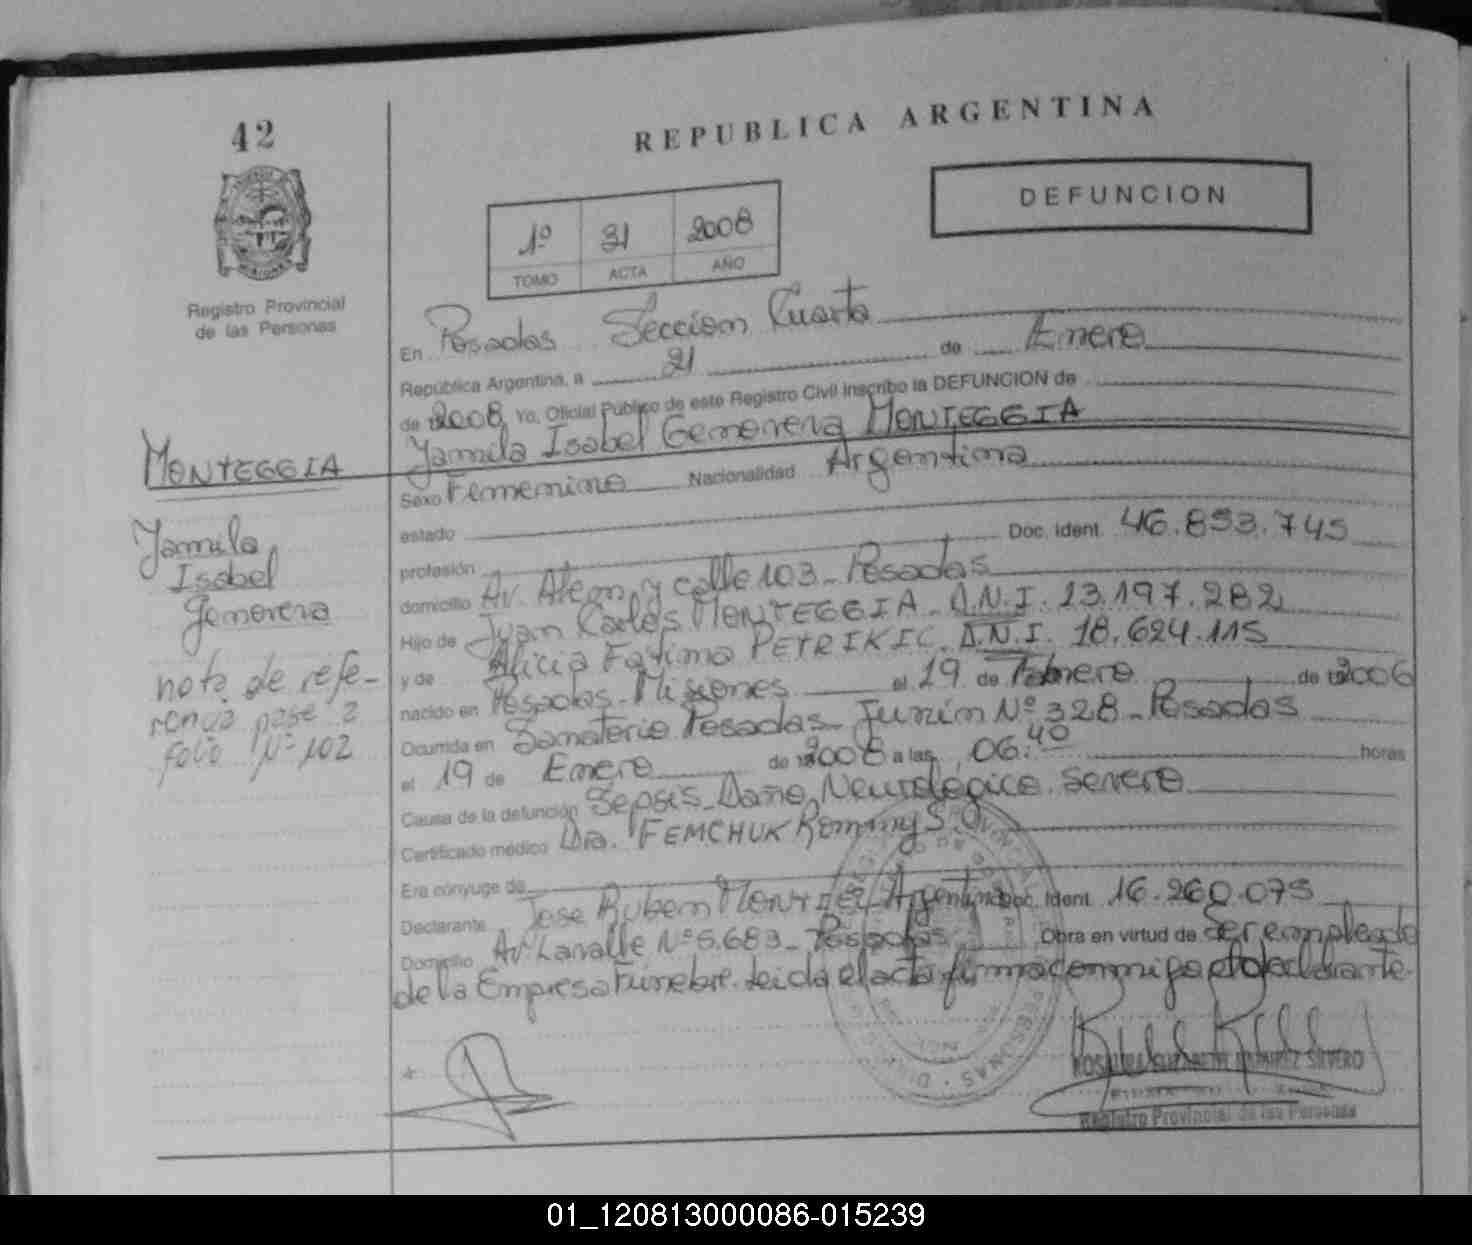 42
REPUBLICA ARGENTINA
DEFUNCION
1º 31 2008
TOMO ACTA AÑO
Registro Provincial
de las Personas
En Posadas Seccion Cuarta
República Argentina, a 21 de Enero
de 2008 Yo, Oficial Público de este Registro Civil inscribo la DEFUNCION de
Yamila Isabel Genoveva MONTEGGIA
MONTEGGIA
Yamila
Isabel
Genoveva
nota de refe-
rencia pase a
folio Nº 102
Sexo Femenino Nacionalidad Argentina
estado Doc. Ident. 46.893.745
profesión
domicilio Av. Alem y calle 103 - Posadas
Hijo de Juan Carlos MONTEGGIA. D.N.I. 13.197.282
y de Alicia Fatima PETRIKIC. D.N.I. 18.624.115
nacido en Posadas - Misiones el 19 de Febrero de 2006
Ocurrida en Sanatorio Posadas - Junin Nº 328 - Posadas
el 19 de Enero de 2008 a las 06:40 horas
Causa de la defunción Sepsis - Daño Neurológico Severo
Certificado médico Dra. FEMCHUK Rommy S.
Era cónyuge de
Declarante Jose Ruben Argentina Doc. Ident. 16.260.075
Domicilio Av. Lavalle Nº 5.683 - Posadas Obra en virtud de Ser empleado
de la Empresa Funebre. Leida el acta firma conmigo el declarante.
SILVERO
Registro Provincial de las Personas
01_120813000086-015239